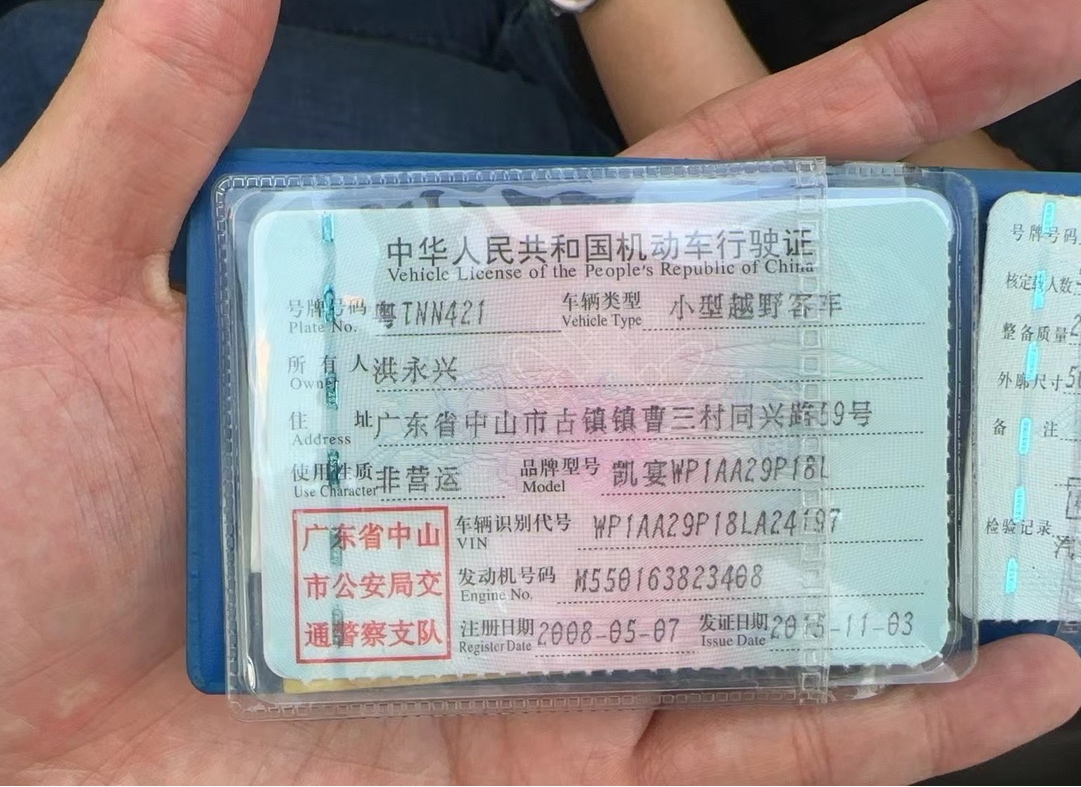 中华人民共和国机动车行驶证
Vehicle License of the People's Republic of China
号牌号码 粤TNN421 车辆类型 小型越野客车
Plate No. Vehicle Type
所有人 洪永兴
Owner
住址 广东省中山市古镇镇曹三村同兴路59号
Address
使用性质 非营运 品牌型号 凯宴WP1AA29P18L
Use Character Model
车辆识别代号 WP1AA29P18LA24197
VIN
发动机号码 M550163823408
Engine No.
注册日期 2008-05-07 发证日期 2015-11-03
Register Date Issue Date
广东省中山
市公安局交
通警察支队
号牌号码
核定载人数
整备质量
外廓尺寸
备注
检验记录